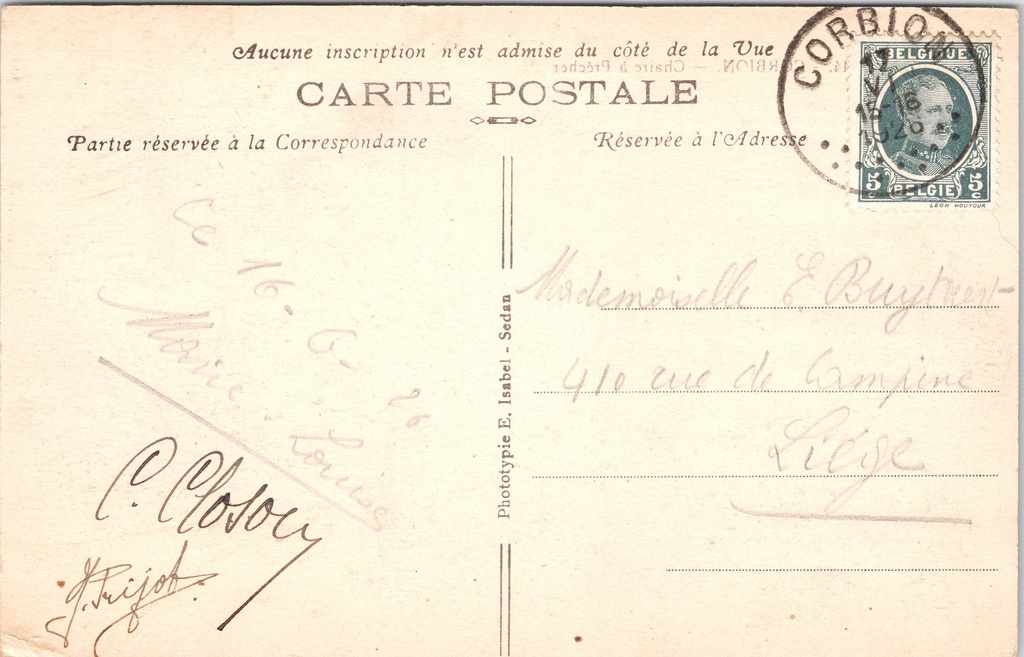 Aucune inscription n'est admise du côté de la Vue
CORBION — Chaire à Prêcher
CARTE POSTALE
Partie réservée à la Correspondance
Réservée à l'Adresse
CORBION
17
VI
15-16
1926
BELGIQUE
5c BELGIE 5c
LEON HOUYOUX
Ce 16-6-26
Marie-Louise
C. Closon
Mademoiselle E.
410 rue de Campine
Liége
Phototypie E. Isabel - Sedan